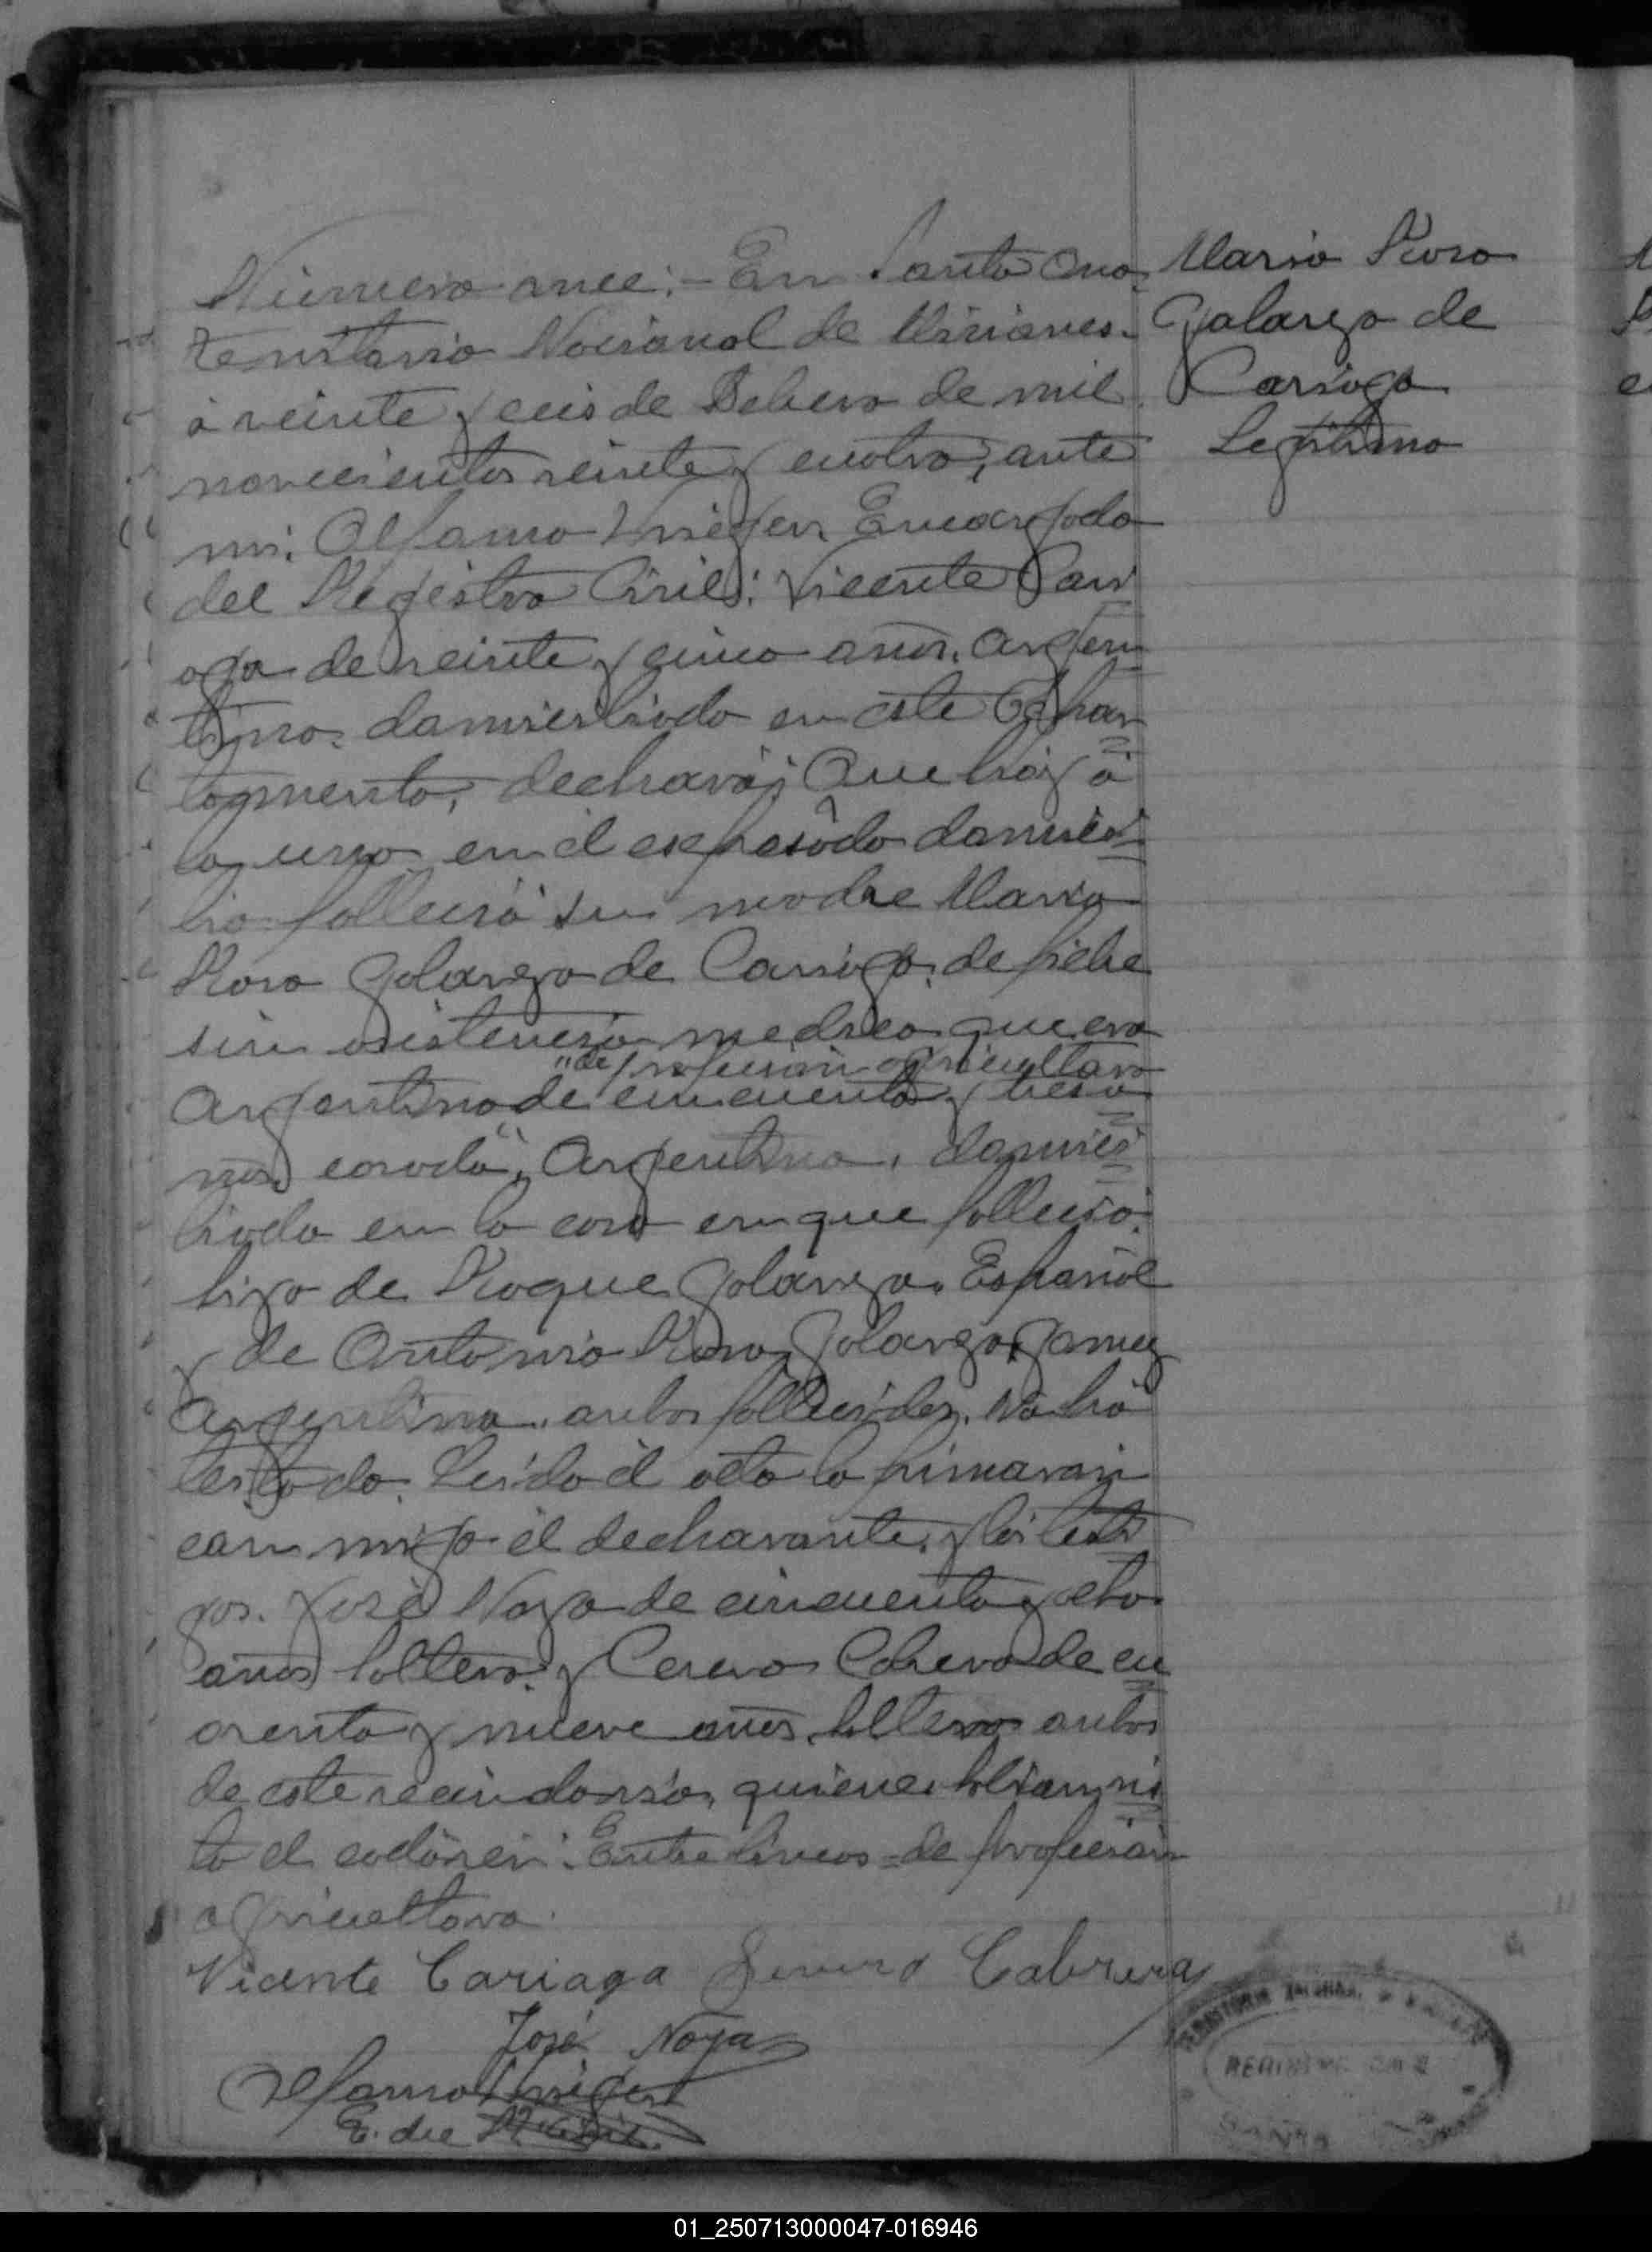 Número once:- En Santa Ana
Territorio Nacional de Misiones
á veinte y seis de Febrero de mil
novecientos veinte y cuatro, ante
mi, Encargado
del Registro Civil: Vicente Cari
aga de veinte y cinco años, Argen
tino, domiciliado en este Depar
tamento, declaró: Que hoy á
la una en el expresado domici
lio falleció su madre Maria
Rosa Galarza de Cariaga, de fiebre
sin asistencia medica que era
"de profesion agricultora
Argentina de cincuenta y tres a
ños casada", Argentina, domici
liada en la casa en que falleció.
hija de Roque Galarza, Español
y de Antonia Rosa Galarza Gomez
Argentina, ambos fallecidos. No há
testado. Leido el acta la firmaron
con migo el declarante, y los testi
gos. José Noya de cincuenta y ocho
años soltero, y Cabrera de cu
arenta y nueve años, soltero ambos
de este vecindario, quienes habian vis
to el cadáver: Entre lineas=de profesion
agricultora.
Vicente Cariaga Severo Cabrera
José Noya
E. del R. Civil.
Maria Rosa
Galarza de
Cariaga
Legitima
REGISTRO CIVIL
SANTA
01_250713000047-016946